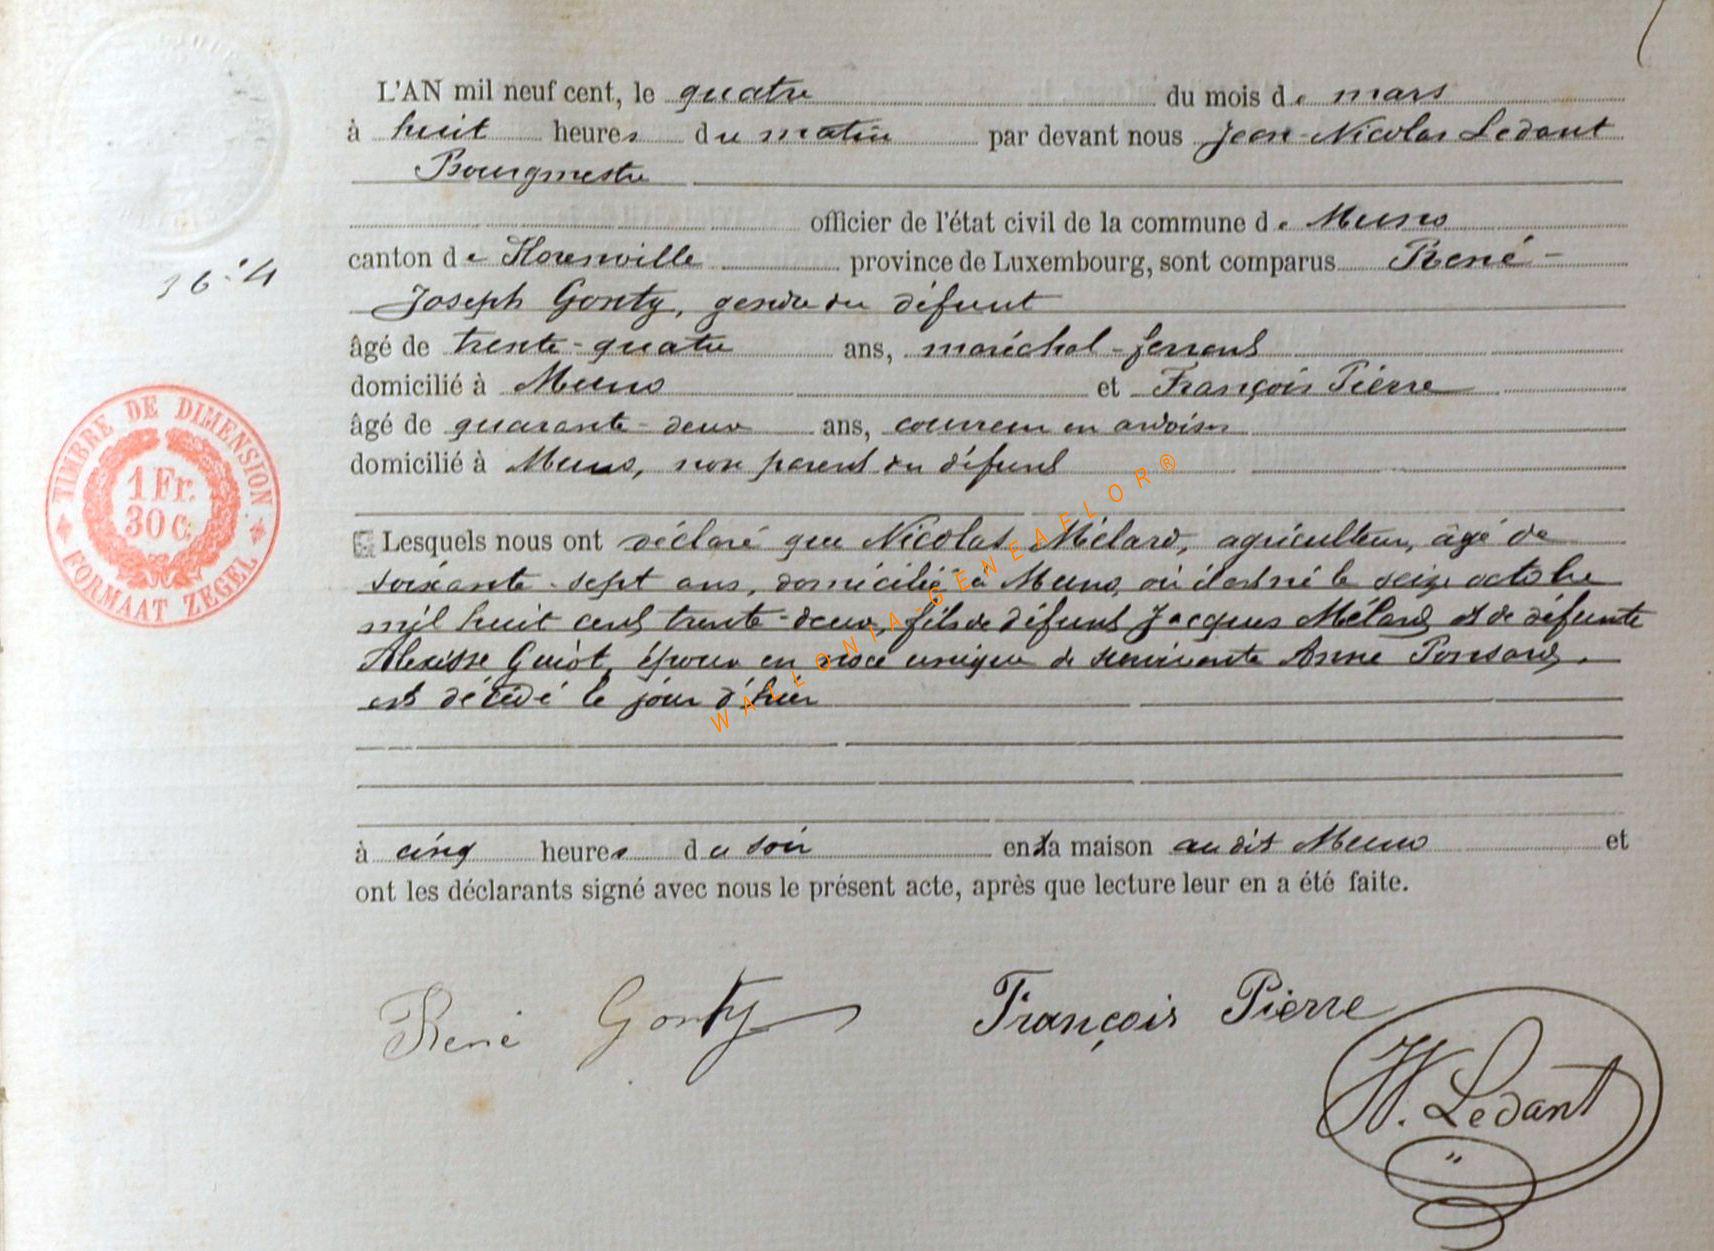 L'AN mil neuf cent, le quatre du mois de mars
à huit heures du matin par devant nous Jean-Nicolas Ledant
Bourgmestre
officier de l'état civil de la commune de Muno
canton de Florenville province de Luxembourg, sont comparus René-
Joseph Gonty, gendre du défunt
âgé de trente-quatre ans, maréchal-ferrant
domicilié à Muno et François Pierre
âgé de quarante-deux ans, couvreur en ardoises
domicilié à Muno, non parent du défunt
Lesquels nous ont déclaré que Nicolas Mélard, agriculteur, âgé de
soixante-sept ans, domicilié à Muno, où il est né le seize octobre
mil huit cent trente-deux, fils de défunt Jacques Mélard et de défunte
Alexisse Guiot, époux en noce unique de survivante Anne Ponsard,
est décédé le jour d'hier
à cinq heures du soir en sa maison au dit Muno et
ont les déclarants signé avec nous le présent acte, après que lecture leur en a été faite.
René Gonty François Pierre
N. Ledant
TIMBRE DE DIMENSION
1 Fr.
30 C.
FORMAAT ZEGEL
WALLONIA-GENEAFLOR®